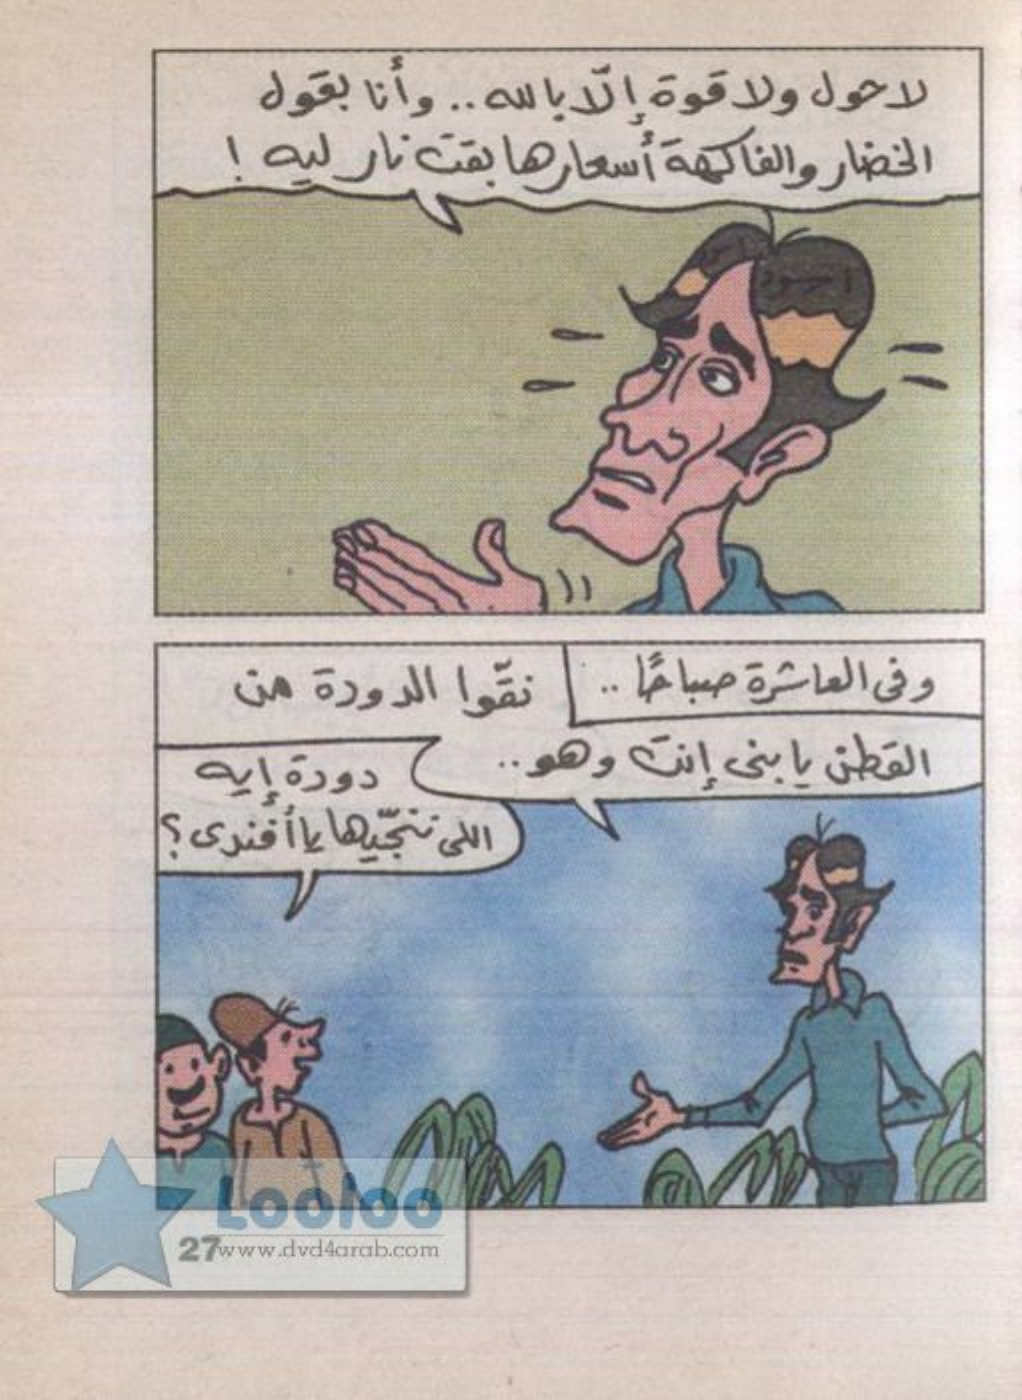 لا حول ولا قوة إلّا بالله.. وأنا بقول
الخضار والفاكهة أسعارها بقت نار ليه !
وفى العاشرة صباحًا ..
نقّوا الدودة من
القطن يا بنى إنت وهو..
دودة إيه
اللى ننجّيها يا أفندى ؟
Looloo
27
www.dvd4arab.com